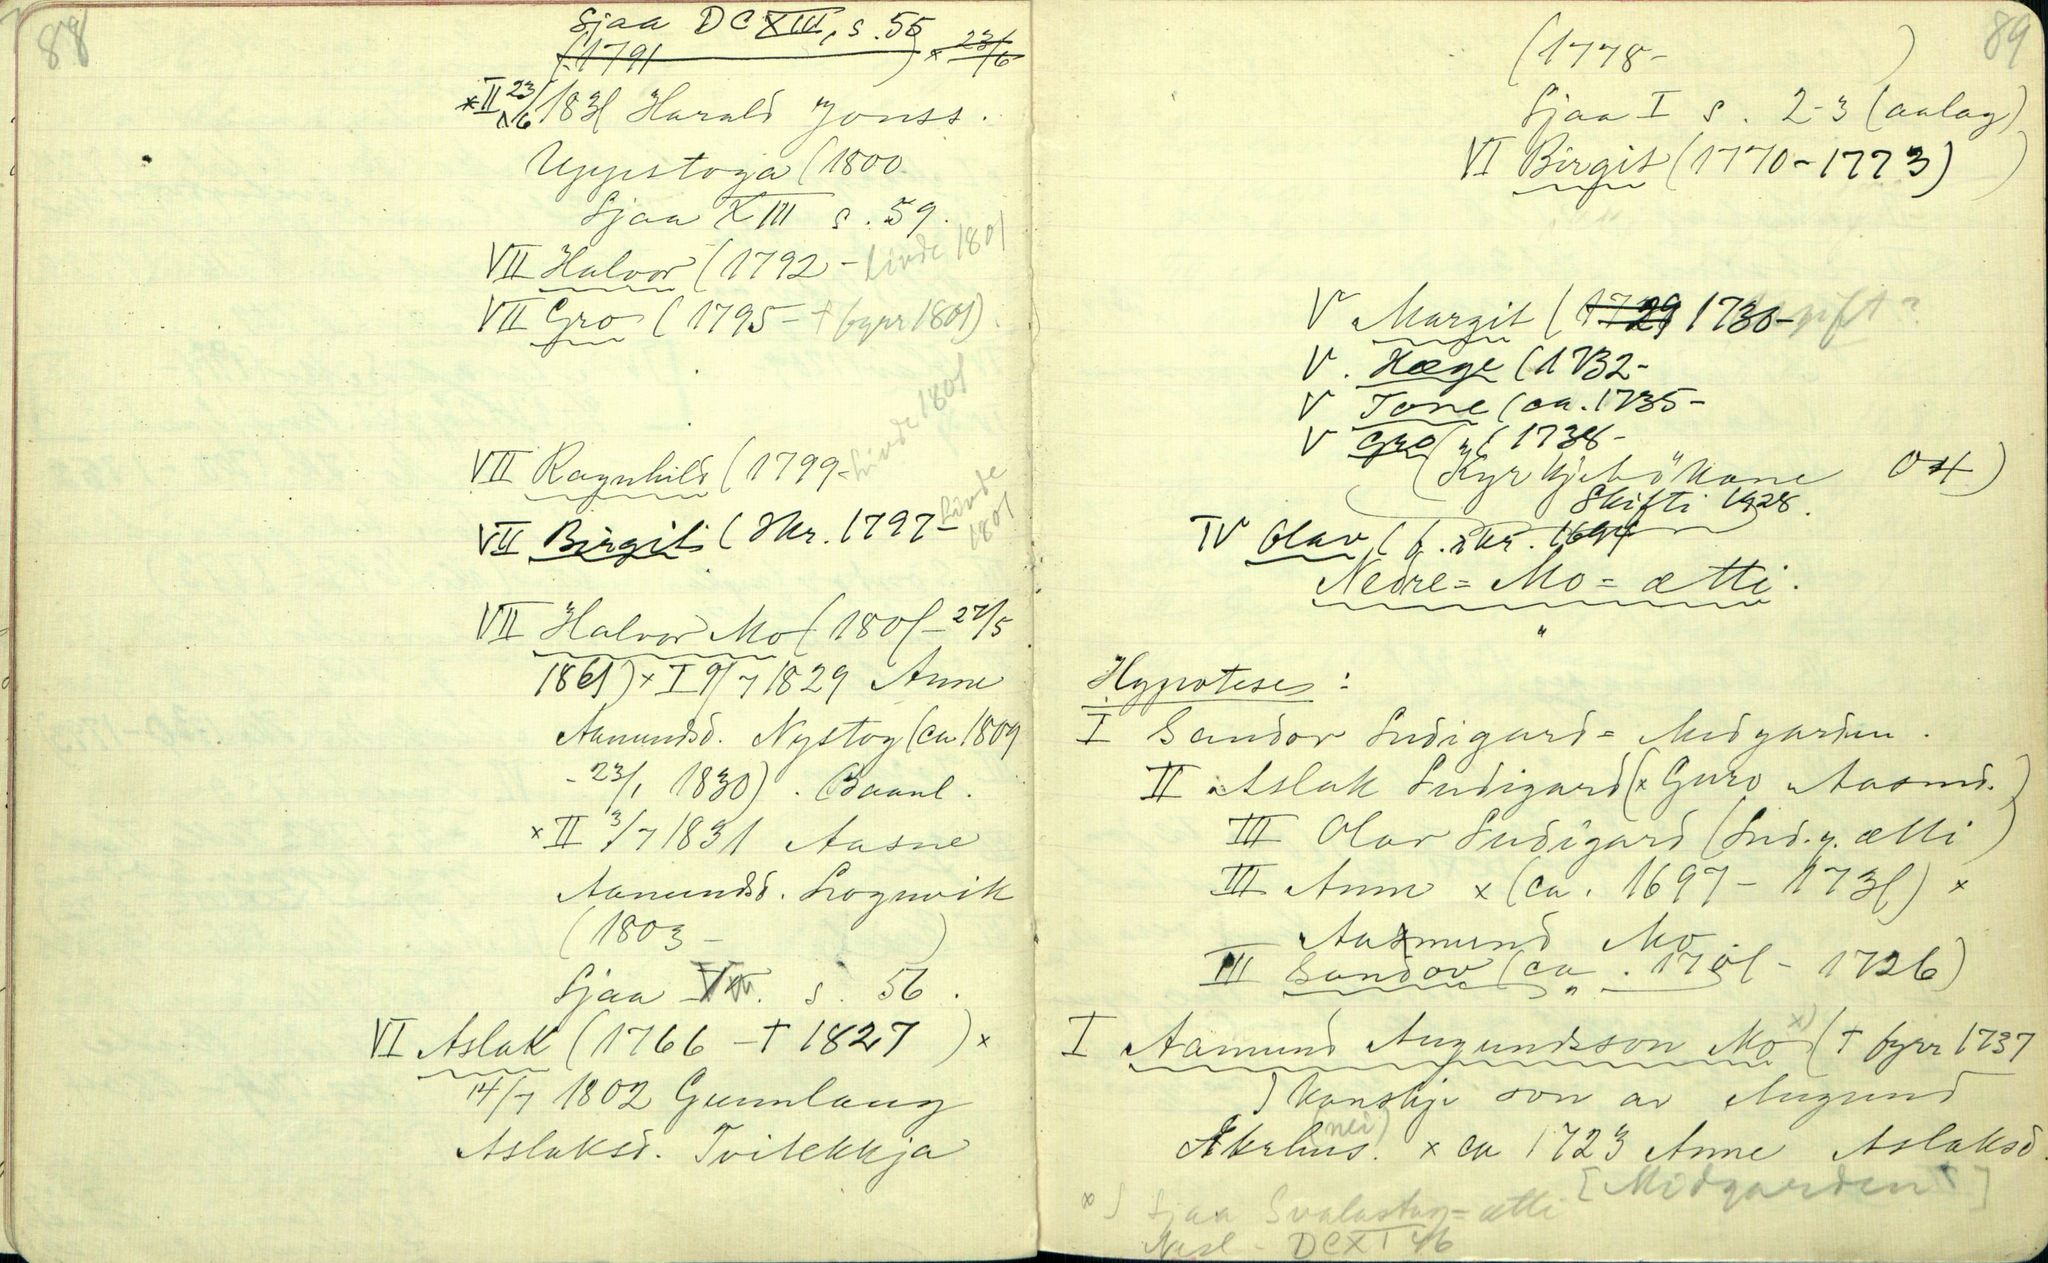 88
Sjaa DCXIII, s. 55
(1791 ) x 23/6
x II 23/6 1831 Harald Jonss.
Uppistoga (1800
Sjaa XIII s. 59.
VII Halvor (1792 - livde 1801
VII Gro (1795 - † fyrr 1801)
VII Ragnhild (1799 - Livde 1801
VII Birgit (Skr. 1797 - Livde
1801
VII Halvor Mo (1801 - 27/5
1861) x I 9/7 1829 Anne
Aamundsd. Nystog (ca 1809
- 23/1 1830). Baanl.
x II 3/7 1831 Aasne
Aamundsd. Lognvik
(1803 - )
Sjaa s. 56.
VI Aslak (1766 - † 1827) x
14/7 1802 Gunnlaug
Aslaksd. Tvitekkja
89
(1778 - )
Sjaa I s. 2-3 (aalag)
VI Birgit (1770 - 1773)
V Margit (1729 1730 - gift?
V. Hæge (1732 -
V Tone (ca. 1735 -
V Gro (1738 -
(Kyrkjebökane )
Skifti 1728.
IV Olav (f. skr. 1694
Nedre = Mo = ætti.
"
Hypoteses:
I Sandor Sudigard = Midgarden.
II Aslak Sudigard (x Guro Aasmd.)
III Olav Sudigard (Sud.g. ætti)
III Anne x (ca. 1697 - 1731) x
Aamund Mo
III Sandov (ca. 1701 - 1726)
"
I Aamund Augundsson Mo x) († fyrr 1737
) kanskje son av Augund
Åkrhus. (nei) x ca 1723 Anne Aslaksd.
[Midgarden]
x) Sjaa Svalastog = ætti
DCXI 46